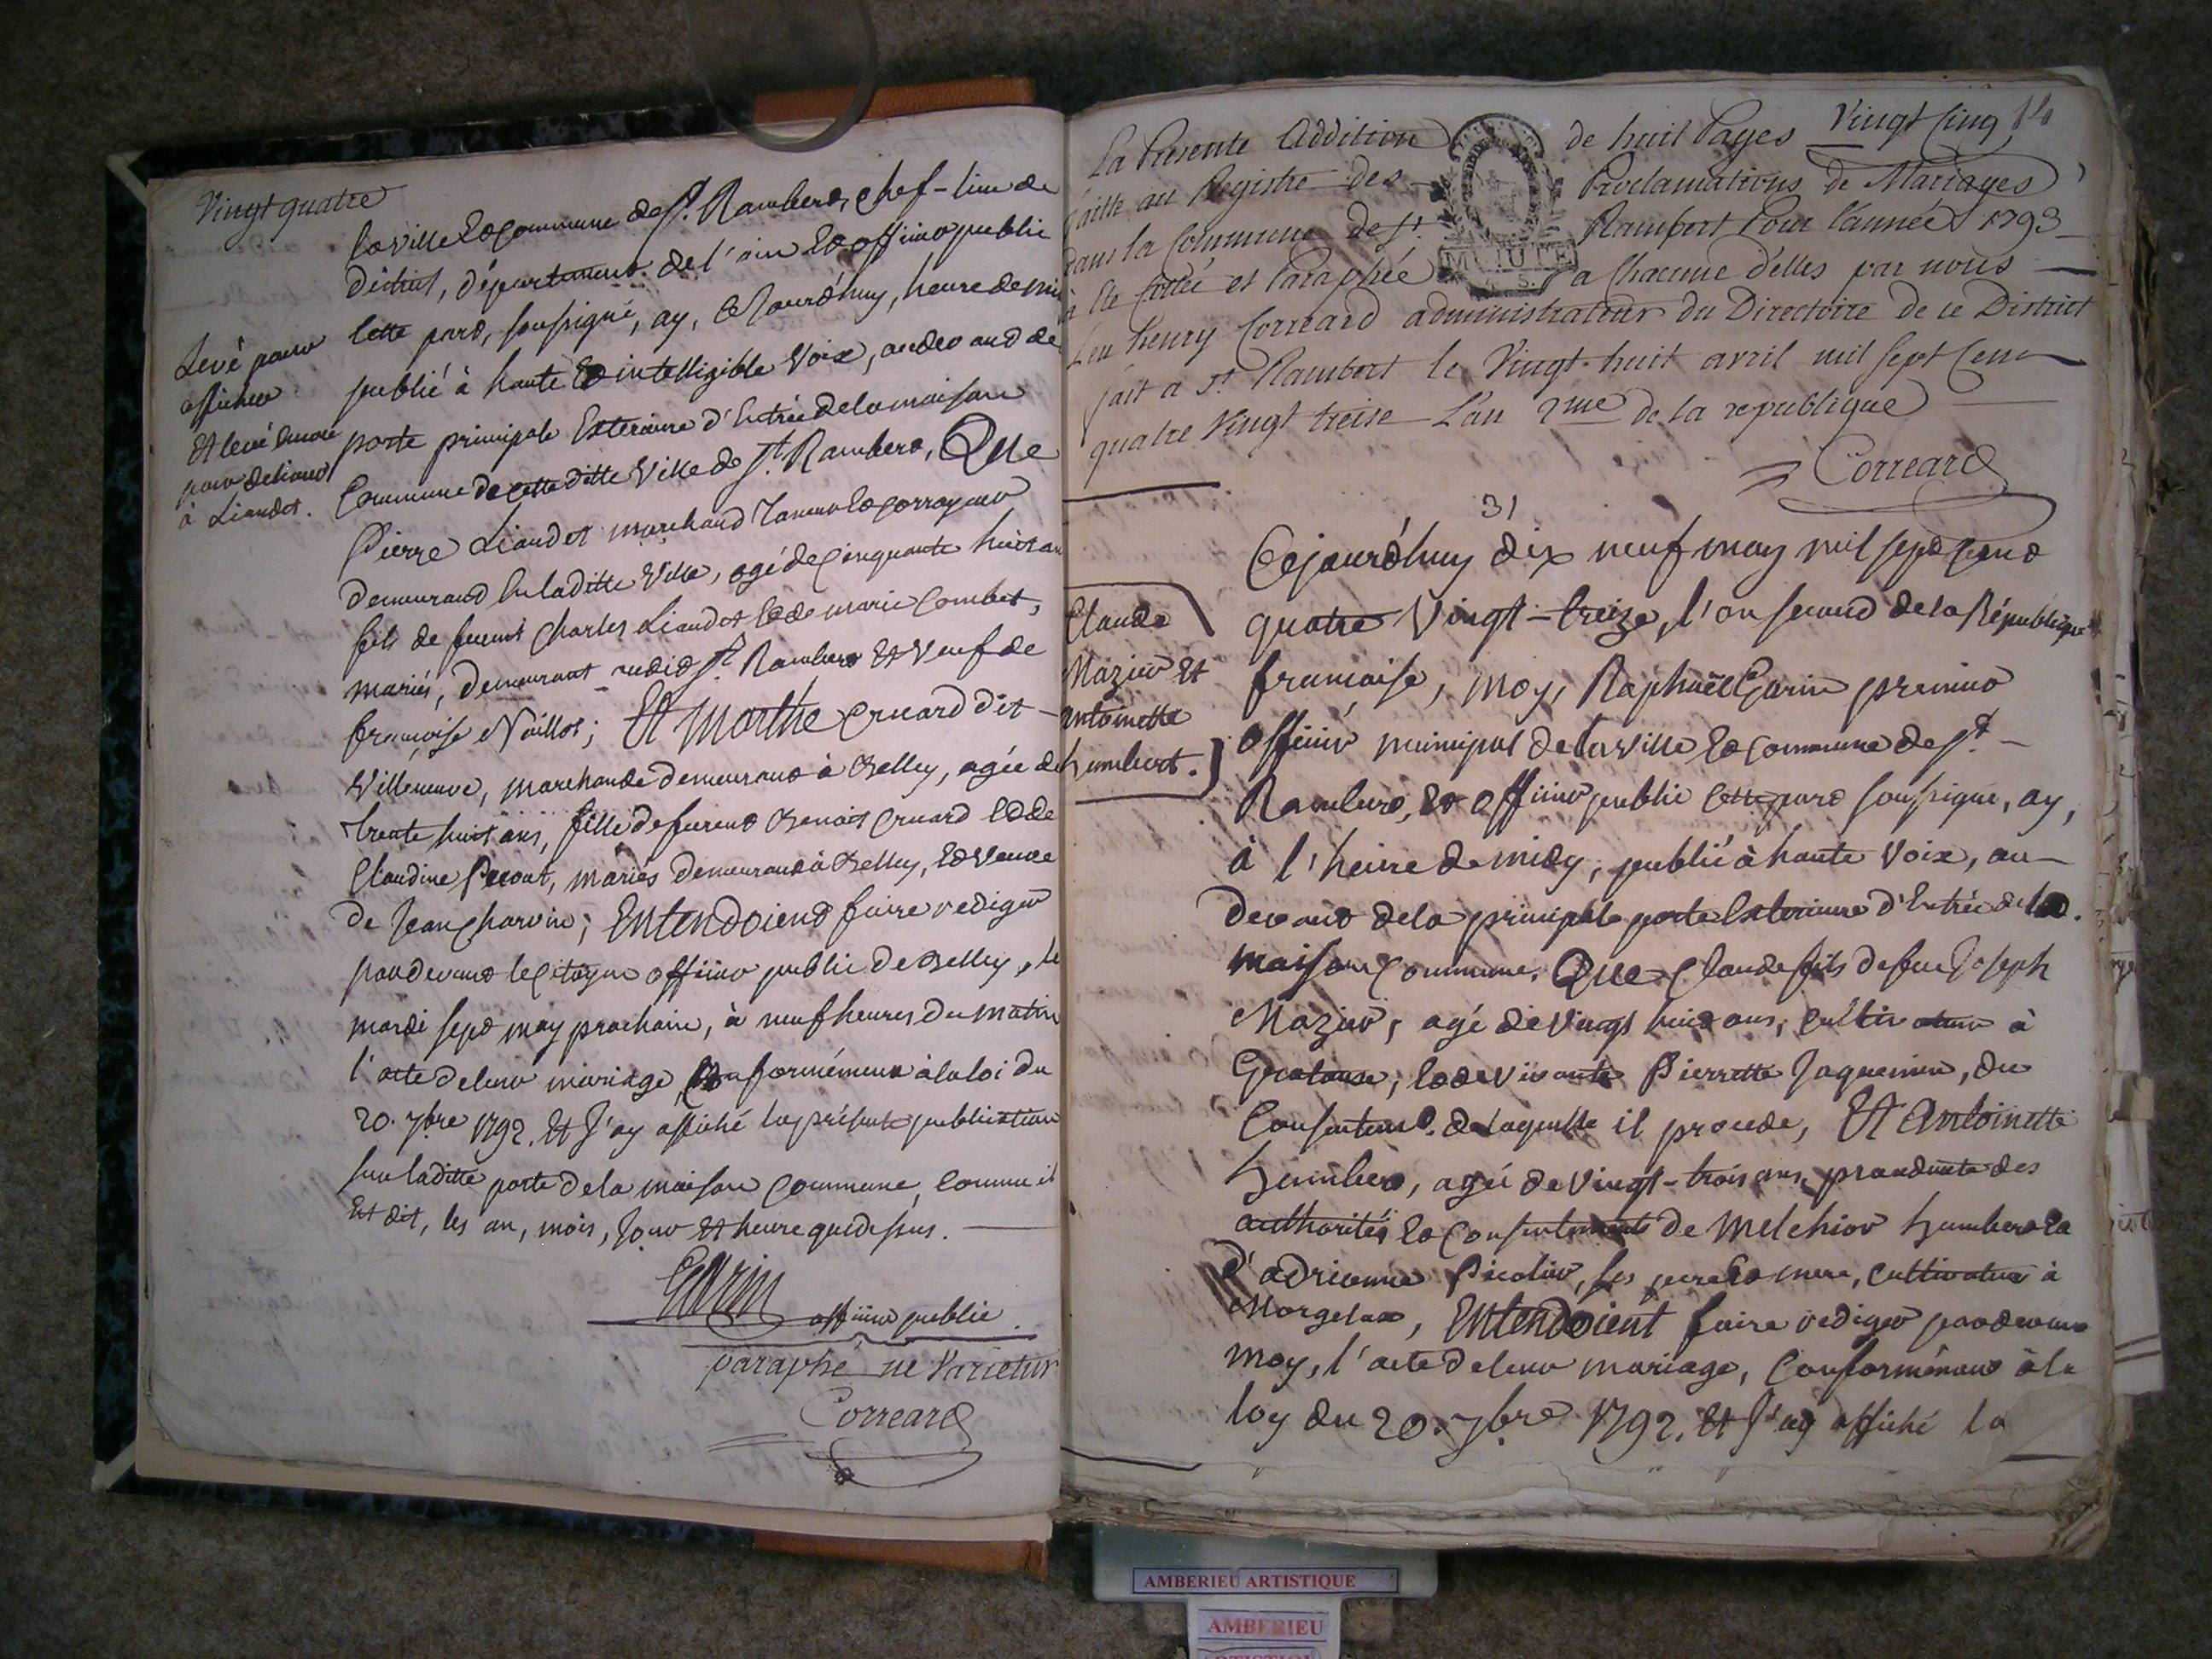 Vingt quatre
la ville & commune de St. Rambert, chef-lieu de
district, département de l'ain & officier public
cette part, soussigné, ay, cejourd'huy, heure de midi
publié à haute & intelligible voix, audevand de
porte principale Exterieure d'Entrée de la maison
Commune de cette ditte Ville de St. Rambert, Que
Pierre Liaudet marchand Taneur & corroyeur
demeurand en laditte Ville, agé de cinquante huit ans
fils de feu Charles Liaudet & de marie Combet,
mariés, demeurant audit St. Rambert Et veuf de
françoise Noillot; Et Marthe Cruard dit
Villeneuve, marchande demeurand à Belley, agée de
trente huit ans, fille de feu Benoit Cruard & de
Claudine, mariés demeurand à Belley, & veuve
de Jean Charvin; Entendoiend faire rediger
pardevand le Citoyen officier public de Belley, le
mardi sept may prochain, à neuf heures du matin
l'acte de leur mariage, Conformémend à la loi du
20. 7bre 1792. Et J'ay affiché la présente publication
sur laditte porte de la maison Commune, comme il
Est dit, les an, mois, Jour Et heure que dessus.
Garin
officier public
paraphé ne Varietur
Correard
Levé pour
afficher
Et levé encore
pour
à Liaudet.
La Presente Addition de huit Pages Vingt Cinq 14
faitte au Registre des Proclamations de Mariages
dans la Commune de St. Rambert Pour l'année 1793
à été Cottée et Paraphée a Chacune d'elles par nous
henry Correard administrateur du Directoire de ce District
fait a St. Rambert le Vingt-huit avril mil sept Cent
quatre Vingt treise L'an 2me de la republique
Correard
31
Cejourd'huy dix neuf may mil sept cend
quatre Vingt-treize, l'an second de la République
francaise, moy, Raphaël Garin premier
officier municipal de la ville & commune de St.
Rambert, & officier public cette part soussigné, ay,
à l'heure de midy, publié à haute voix, au-
devand de la principale porte Exterieure d'Entrée de la
maison Commune, Que Claude fils de feu Joseph
Mazier, agé de Vingt huit ans, cultivateur à
& de vivante Pierrette Jaquemin, du
Consentemend de laquelle il procede, Et Antoinette
humbert, agée de Vingt-trois ans, procedante des
authorités & Consentements de Melchior humbert &
d'adrienne, ses pere & mere, cultivateur à
Morgelas, Entendoient faire rediger pardevand
moy, l'acte de leur mariage, Conformémend à la
loy du 20. 7bre 1792. Et J'ay affiché la
Claude
Mazier Et
antoinette
humbert.
MINUTE
AMBERIEU ARTISTIQUE
AMBERIEU